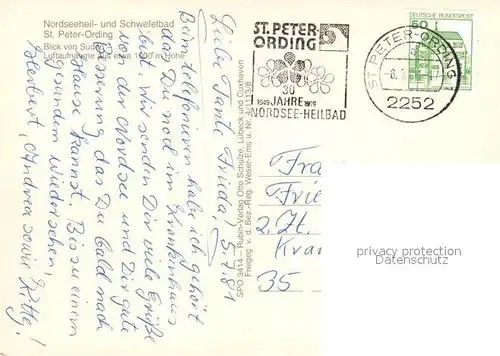 Nordseeheil- und Schwefelbad
St. Peter-Ording
Blick von Süden
Luftaufnahme aus etwa 1000 m Höhe
ST. PETER-
ORDING
30
1949 JAHRE 1979
NORDSEE-HEILBAD
ST PETER-ORDING 1
2252
DEUTSCHE BUNDESPOST
50
5.7.81
Liebe Tante Frieda!
Beim telefonieren habe ich gehört
das Du noch im Krankenhaus
bist. Wir senden Dir viele Grüße
von der Nordsee und Dir gute
Besserung, das Du bald nach
Hause kannst. Bis zu einem
gesunden Wiedersehen,
Herbert, Andrea sowie
SPO 3414 – Rubin-Verlag Otto Schulze, Lübeck und Cuxhaven
Freigeg. v. d. Bez.-Reg. Weser-Ems u. Nr.
Frau
2. Zt.
35
privacy protection
Datenschutz